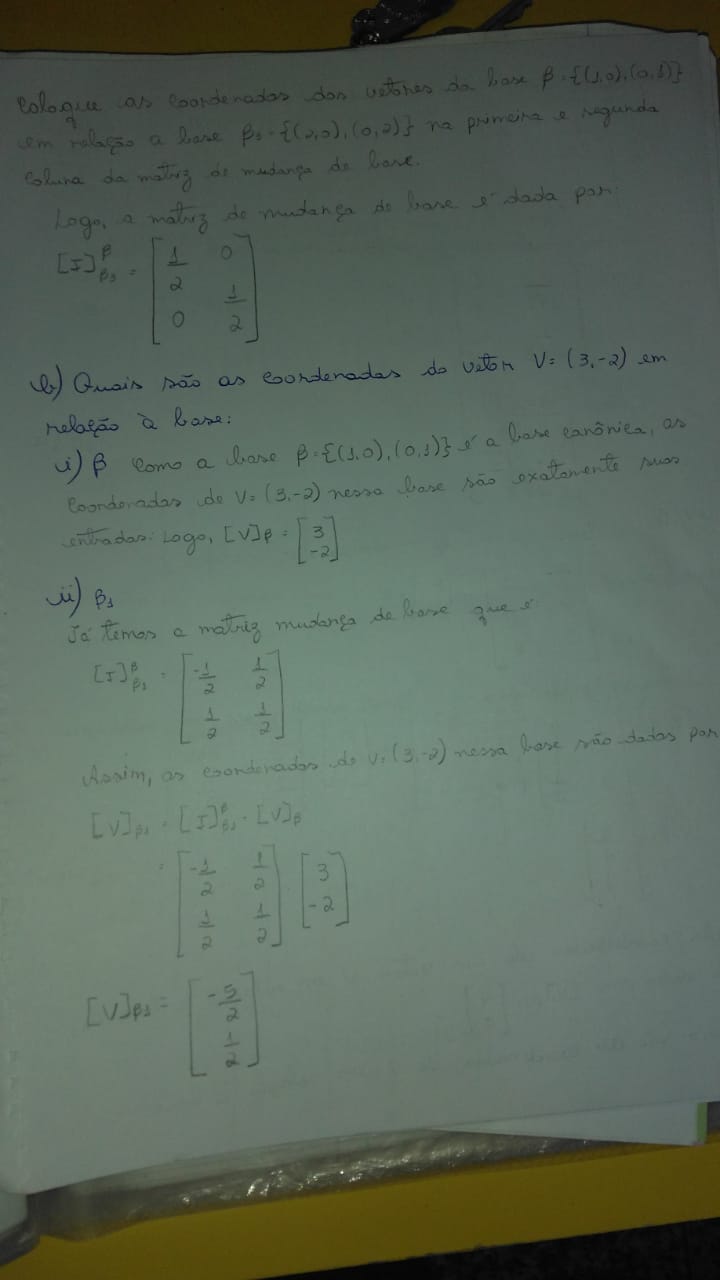 Coloque as coordenadas dos vetores da base β={(1,0),(0,1)}
em relação a base β₃={(2,0),(0,2)} na primeira e segunda
coluna da matriz de mudança de base.
Logo, a matriz de mudança de base é dada por:
[I]^β_β₃ = [1/2 0
0 1/2]
b) Quais são as coordenadas do vetor V=(3,-2) em
relação à base:
i) β Como a base β={(1,0),(0,1)} é a base canônica, as
coordenadas de V=(3,-2) nessa base são exatamente suas
entradas. Logo, [V]β = [3
-2]
ii) β₁
Já temos a matriz mudança de base que é
[I]^β_β₁ = [-1/2 1/2
1/2 1/2]
Assim, as coordenadas de V=(3,-2) nessa base são dadas por
[V]β₁ = [I]^β_β₁ . [V]β
= [-1/2 1/2
1/2 1/2] [3
-2]
[V]β₁ = [-5/2
1/2]